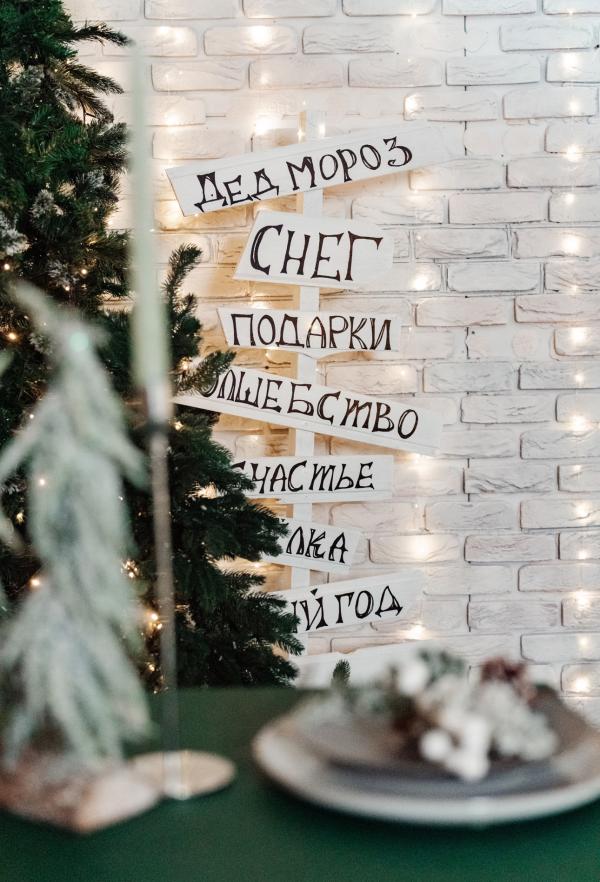 ДЕД МОРОЗ
СНЕГ
ПОДАРКИ
ОЛШЕБСТВО
СЧАСТЬЕ
ЛКА
ЫЙ ГОД